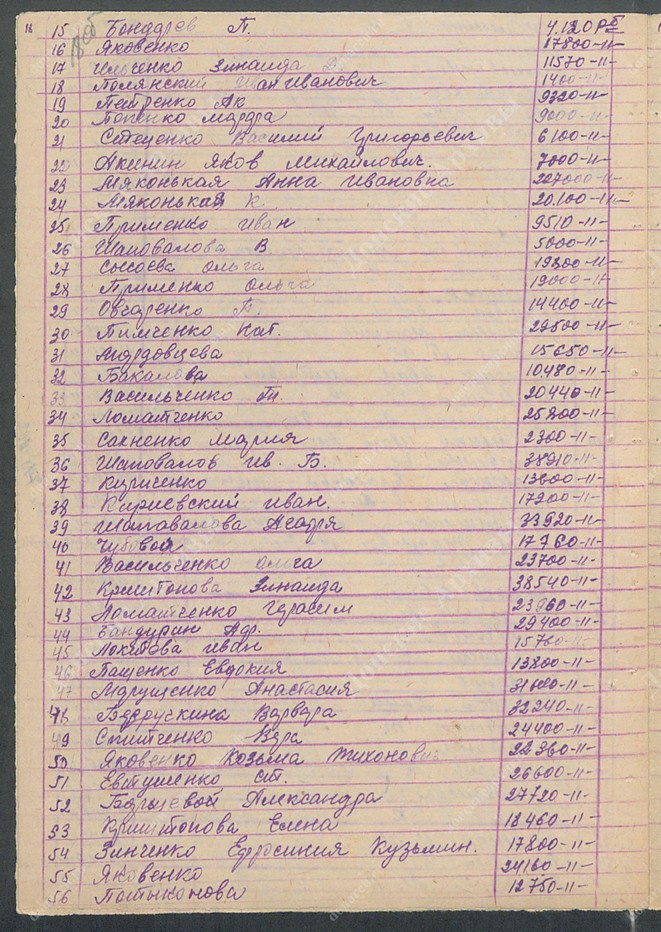 18
15 Бондарев П. 4.120 Рб
16 Яковенко 17800-11-
17 Ильченко Зинаида 11570-11-
18 Полянский Иван Иванович 1400-11-
19 Петренко Ак 9320-11-
20 Попенко Марфа 9000-11-
21 Стеценко Василий Григорьевич 6100-11-
22 Акинин Яков Михайлович. 7000-11-
23 Мяконькая Анна Ивановна 207000-11-
24 Мяконькая К. 20.100-11-
25 Применко Иван 9510-11-
26 Шаповалова В. 5000-11-
27 Сысоева Ольга 19800-11-
28 Применко Ольга 19000-11
29 Овчаренко П. 14400-11-
30 Тимченко Нат. 29500-11-
31 Мордовцева 15650-11-
32 Бакалова 10480-11-
33 Васильченко 20440-11-
34 Ломатченко 25800-11-
35 Сахненко Мария 2300-11-
36 Шаповалов Ив. Б. 38910-11-
37 Кириченко 13600-11-
38 Кириевский Иван. 17200-11-
39 Шаповалова Агафя 33920-11-
40 Чубовой 17760-11-
41 Васильченко Ольга 23700-11-
42 Криштопова Зинаида 38540-11-
43 Ломатченко Герасим 23960-11-
44 Бандурин Адр. 29400-11-
45 Локтова Иван 15700
46 Пащенко Евдокия 13800-11-
47 Марущенко Анастасия
48 Варвара 32240-11-
49 Снитченко Вера 24400-11-
50 Яковенко Козьма Тихонович 22360-11-
51 Евтушенко ст. 26600-11-
52 Александра 27720-11-
53 Криштопова Елена 18460-11-
54 Зинченко Ефросиния Кузьмин. 17800-11-
55 Яковенко 24160-11-
56 12750-11-